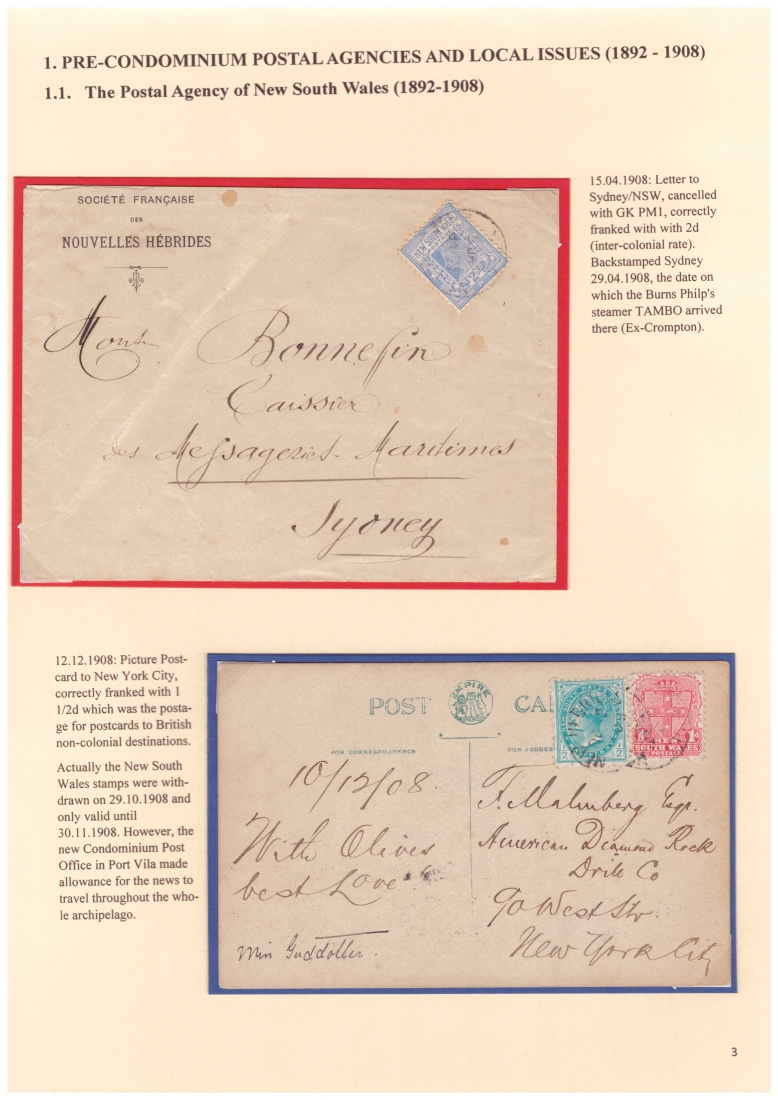 1. PRE-CONDOMINIUM POSTAL AGENCIES AND LOCAL ISSUES (1892 - 1908)
1.1. The Postal Agency of New South Wales (1892-1908)
SOCIÉTÉ FRANÇAISE
DES
NOUVELLES HÉBRIDES
NEW SOUTH WALES
Bonnefin
Caissier
des Messageries Maritimes
Sydney
15.04.1908: Letter to
Sydney/NSW, cancelled
with GK PM1, correctly
franked with with 2d
(inter-colonial rate).
Backstamped Sydney
29.04.1908, the date on
which the Burns Philp's
steamer TAMBO arrived
there (Ex-Crompton).
12.12.1908: Picture Post-
card to New York City,
correctly franked with 1
1/2d which was the posta-
ge for postcards to British
non-colonial destinations.
Actually the New South
Wales stamps were with-
drawn on 29.10.1908 and
only valid until
30.11.1908. However, the
new Condominium Post
Office in Port Vila made
allowance for the news to
travel throughout the who-
le archipelago.
POST
EMPIRE
CA
FOR CORRESPONDENCE
FOR ADDRES
NEW
SOUTH WALES
POSTAGE
10/12/08.
With Olives
best Love
Miss Guddoller.
F. Malmberg Esqr.
American Diamond Rock
Drill Co
90 West Str.
New York City
3